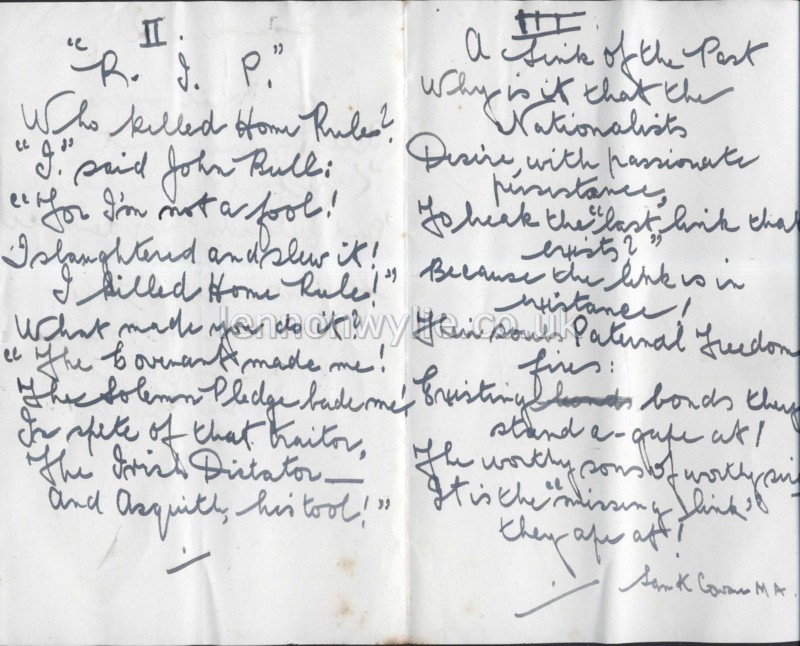 II.
"R. I. P."
Who killed Home Rule?
"I." said John Bull:
"For I'm not a fool!
I slaughtered and slew it!
I killed Home Rule!"
What made you do it?
"The Covenant made me!
The Solemn Pledge bade me!
In spite of that traitor,
The Irish Dictator—
And Asquith, his tool!"
III
A Link of the Past
Why is it that the
Nationalists
Desire, with passionate
persistance,
To break the "last link that
exists?"
Because the link is in
existance!
Their souls Paternal Freedom
fires:
Existing bonds they
stand a-gape at!
The worthy sons of worthy
It is the "missing link"
they ape at!
Sam K Cowan M A.
lennonwylie.co.uk